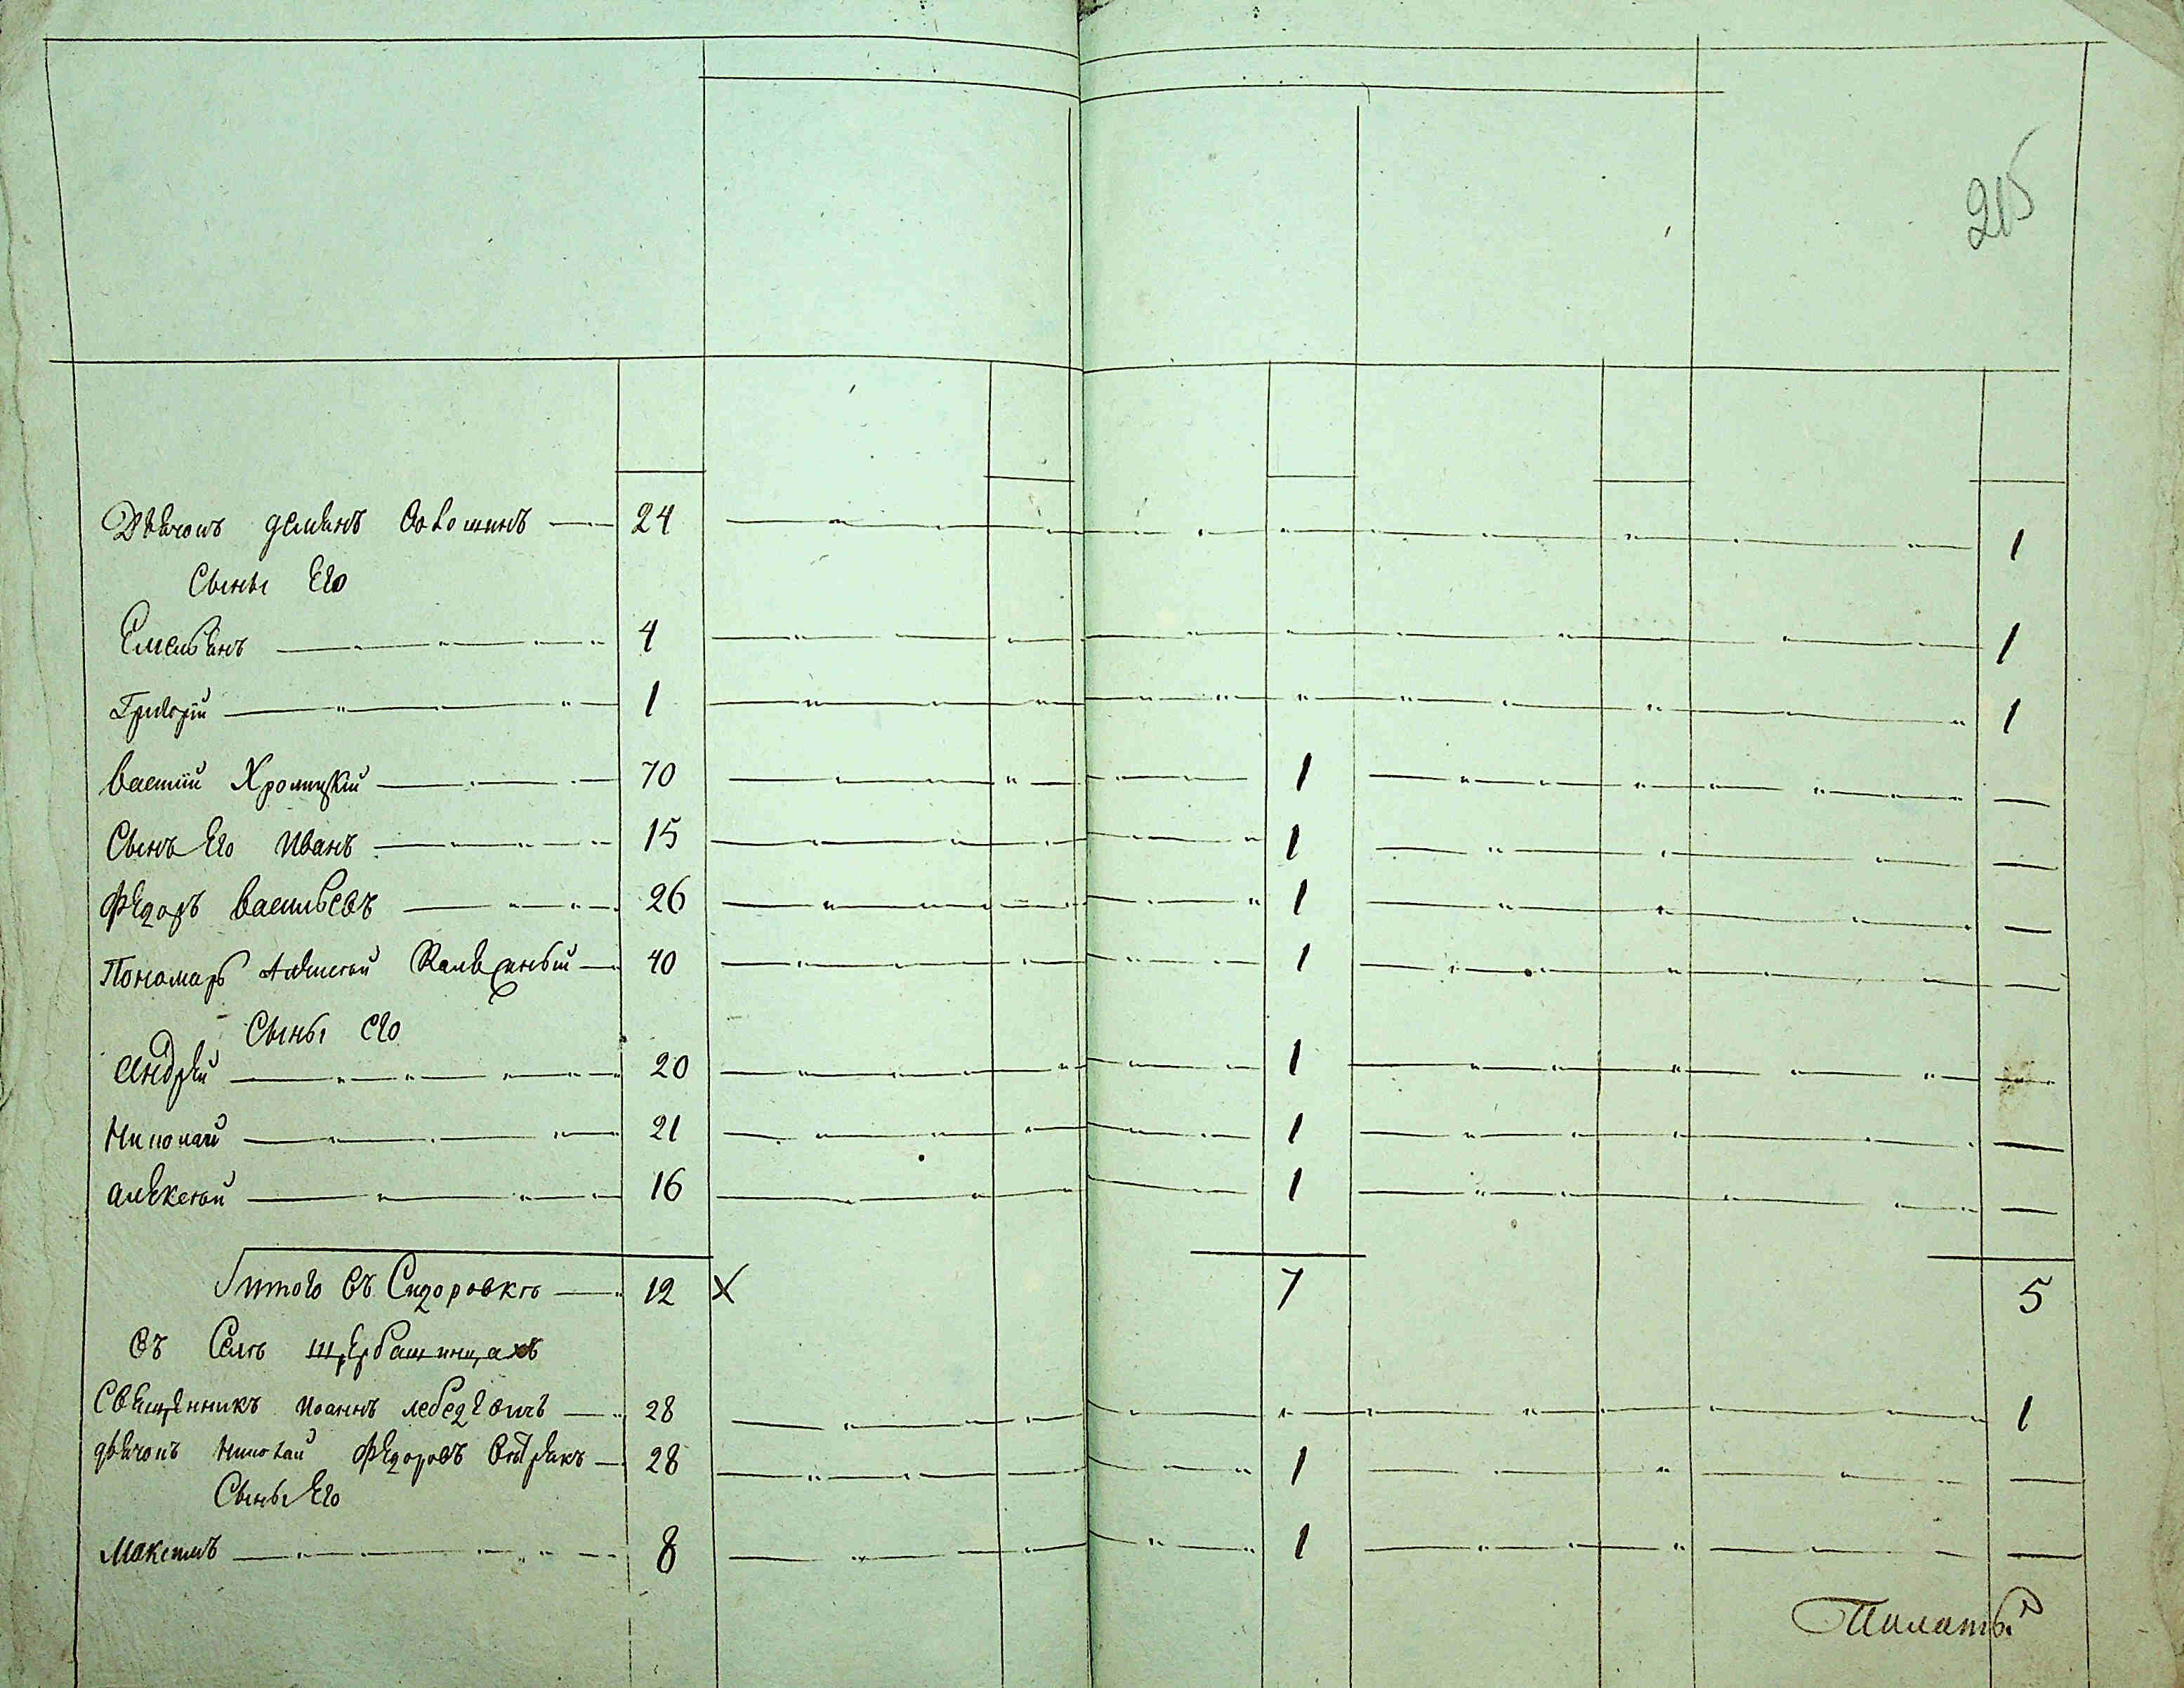 215
Дьячокъ демянъ 24 1
Сыны Его
Емельянъ 4 1
Григорiй 1 1
василiй Хромицкiй 70 1
Сынъ Его Иванъ 15 1
Федоръ васильевъ 26 1
Пономарь Алексей 40 1
Сыны его
Андрей 20 1
Николай 21 1
алексей 16 1
итого въ Сидоровке 12 X 7 5
въ Селе щербашинцахъ
Священникъ иоаннъ лебедевичь 28 1
дьячокъ николай Федоровъ 28 1
Сыны Его
максимъ 8 1
Палаты